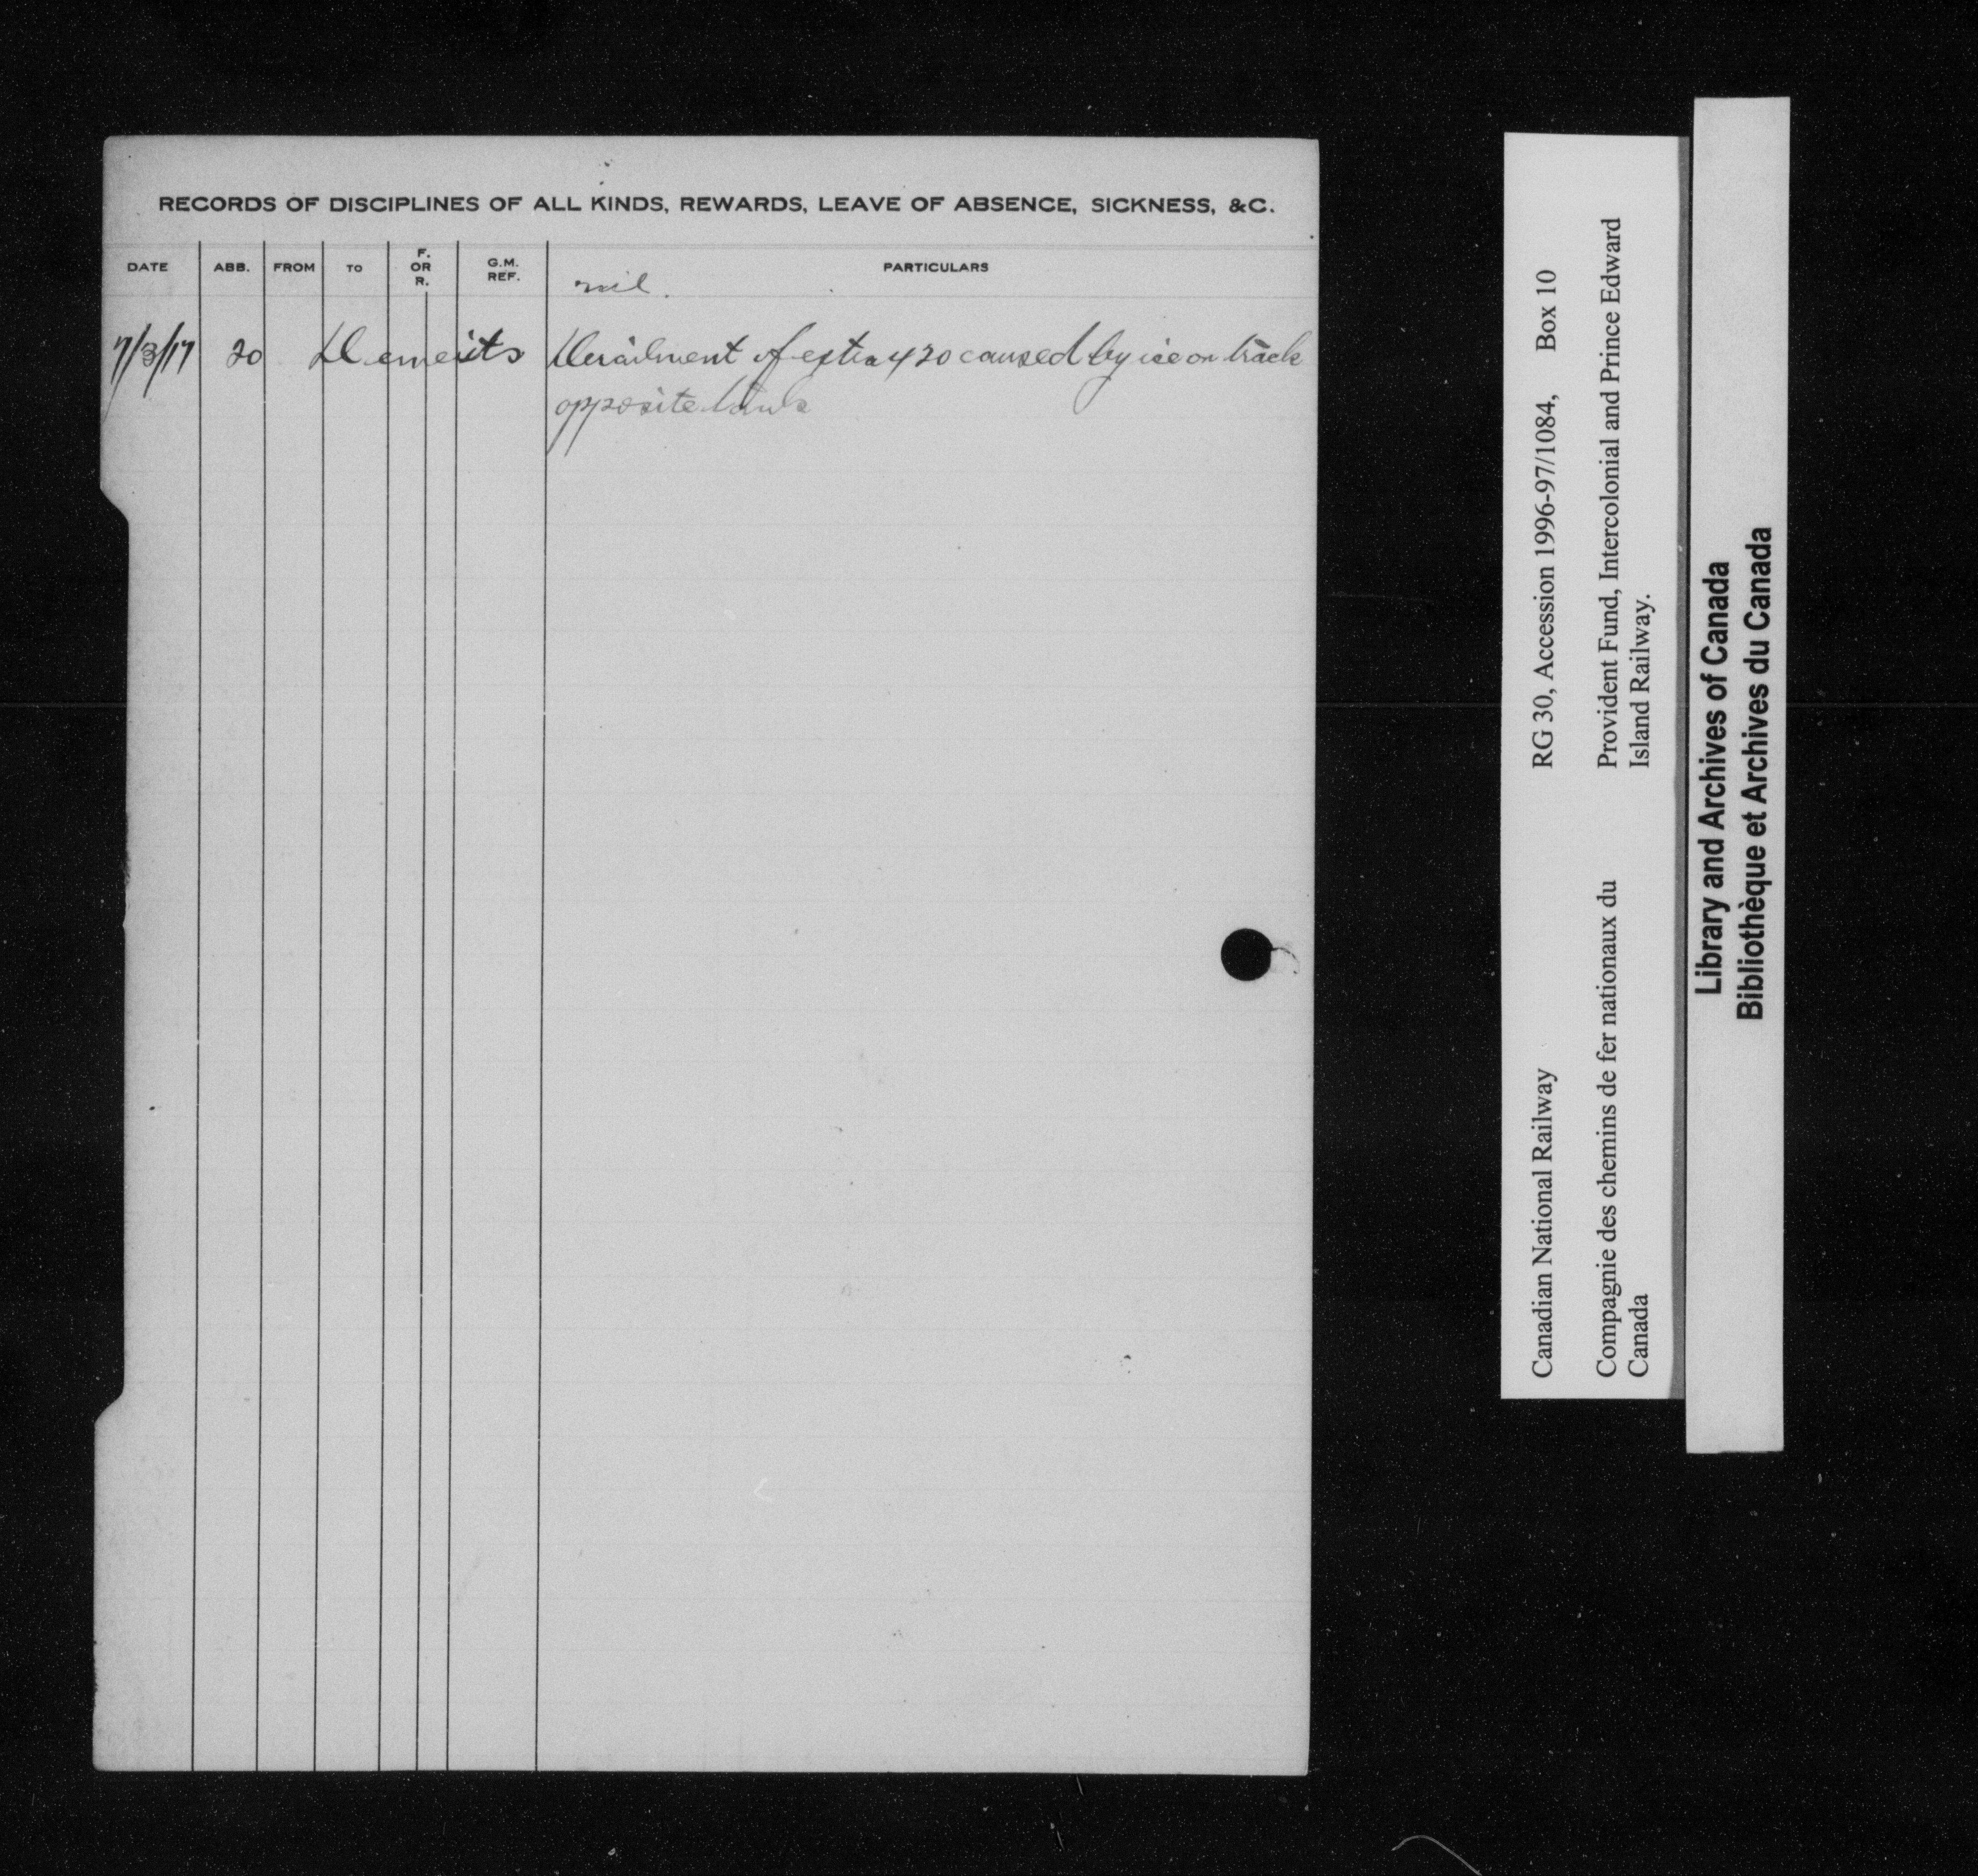 RECORDS OF DISCIPLINES OF ALL KINDS, REWARDS, LEAVE OF ABSENCE, SICKNESS, &C.
DATE ABB. FROM TO F. OR R. G.M. REF. PARTICULARS
nil.
7/3/17 20 Demerits Derailment of extra 420 caused by ice on track
opposite tank
Canadian National Railway RG 30, Accession 1996-97/1084, Box 10
Compagnie des chemins de fer nationaux du Provident Fund, Intercolonial and Prince Edward
Canada Island Railway.
Library and Archives of Canada
Bibliothèque et Archives du Canada